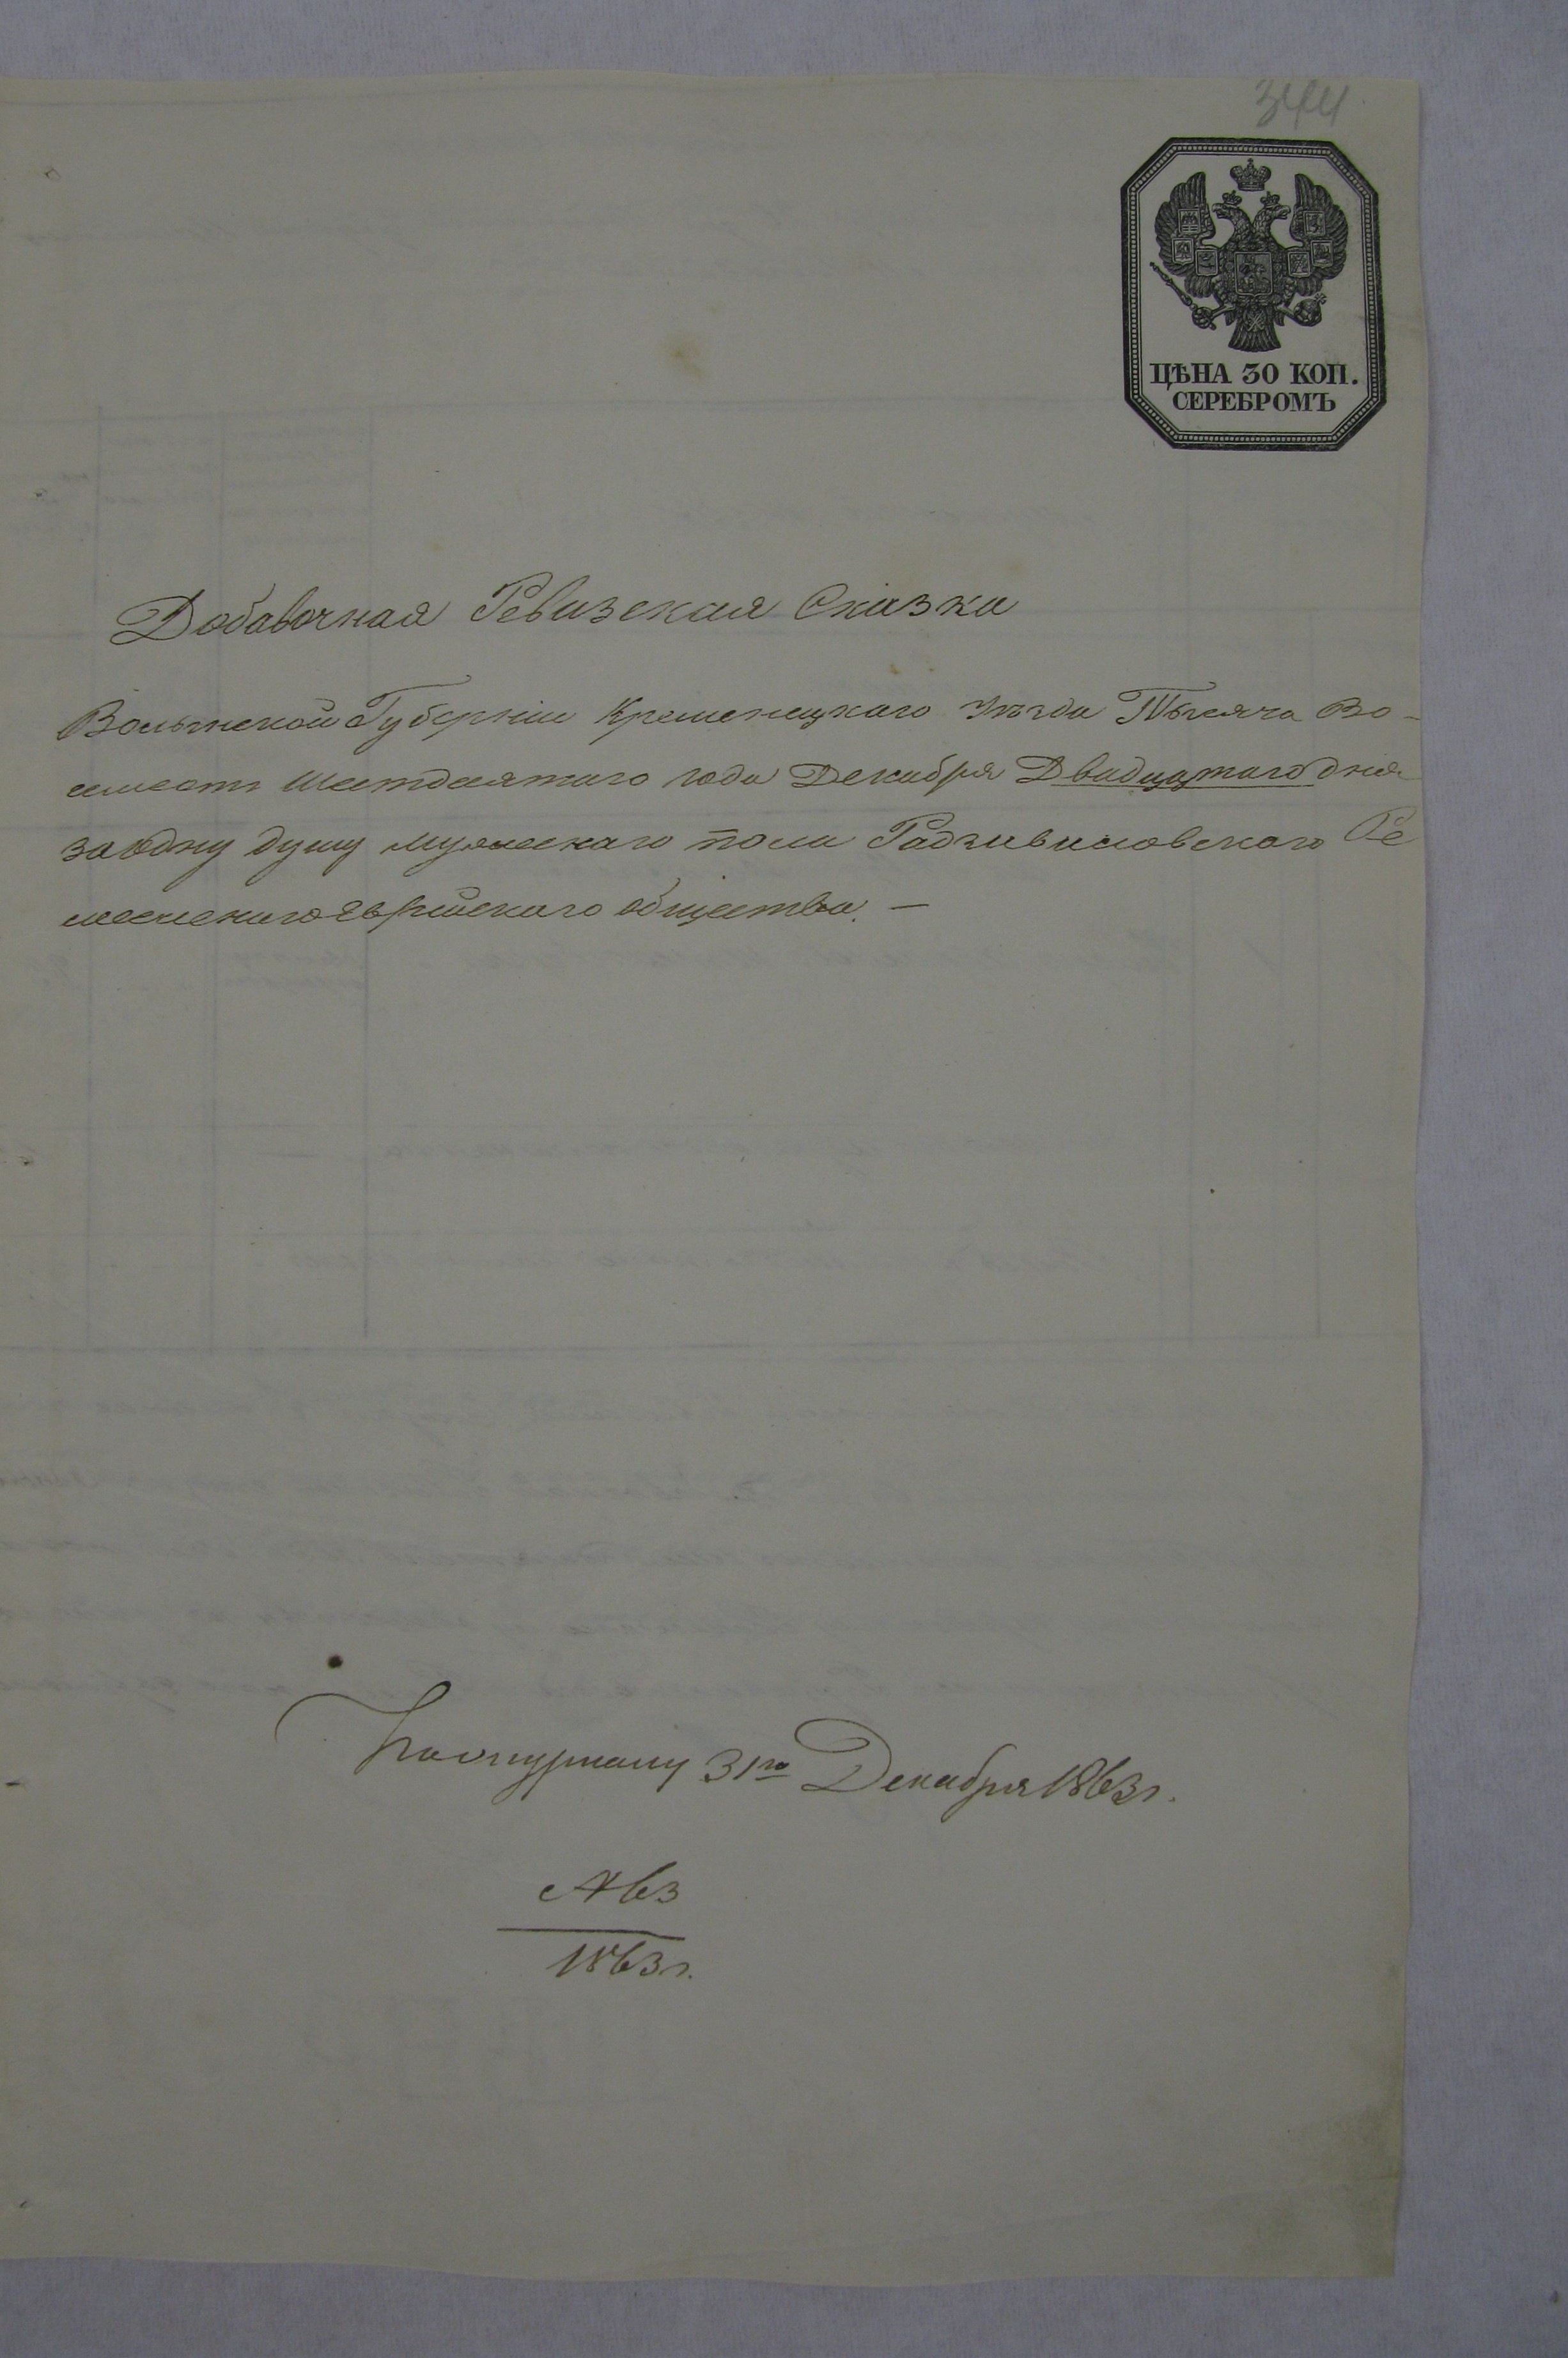 344
ЦѢНА 30 КОП.
СЕРЕБРОМЪ
Добавочная Ревизская Сказка
Волынской Губерніи Кременецкаго Уѣзда Тысяча Во-
семсотъ Шестдесятаго года Декабря Двадцятаго дня
за одну душу мужескаго пола Радзивиловскаго Ре
месленаго Еврейскаго общества. —
31го Декабря 1863 г.
1863 г.